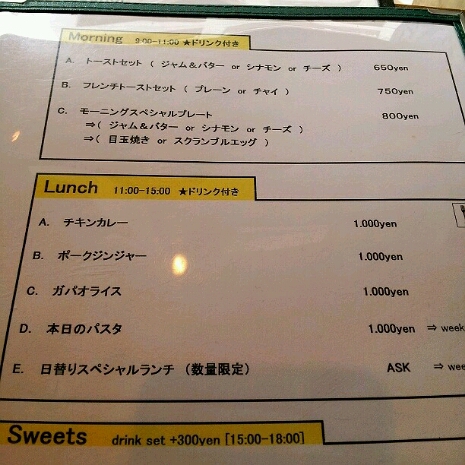 Morning 9:00-11:00 ★ドリンク付き
A. トーストセット ( ジャム&バター or シナモン or チーズ ) 650yen
B. フレンチトーストセット ( プレーン or チャイ ) 750yen
C. モーニングスペシャルプレート 800yen
⇒( ジャム&バター or シナモン or チーズ )
⇒( 目玉焼き or スクランブルエッグ )
Lunch 11:00-15:00 ★ドリンク付き
A. チキンカレー 1.000yen
B. ポークジンジャー 1.000yen
C. ガパオライス 1.000yen
D. 本日のパスタ 1.000yen ⇒ week
E. 日替りスペシャルランチ (数量限定) ASK ⇒ wee
Sweets drink set +300yen [15:00-18:00]